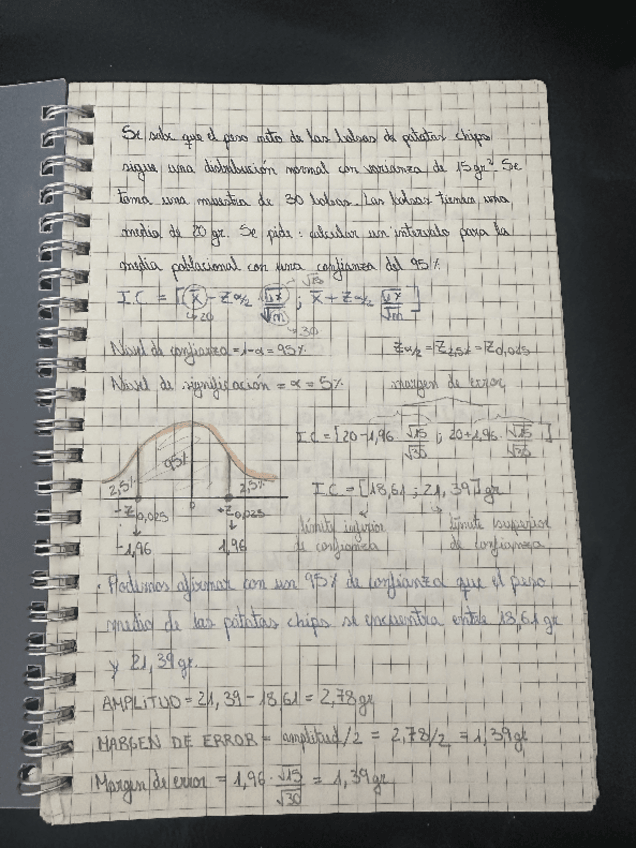 Se sabe que el peso neto de las bolsas de patatas chips
sigue una distribución normal con varianza de 15gr². Se
toma una muestra de 30 bolsas. Las bolsas tienen una
media de 20 gr. Se pide: calcular un intervalo para la
media poblacional con una confianza del 95%
I.C = [x̄ - Zα/2 √ / √m ; x̄ + Zα/2 √ / √m]
√15
↳20
↳30
Nivel de confianza = 1-α = 95%
Zα/2 = Z2,5% = Z0,025
Nivel de significación = α = 5%
margen de error
I.C = [20-1,96 √15/√30 ; 20+1,96 · √15/√30]
95%
2,5% 2,5%
I.C = [18,61 ; 21,39] gr
-Z0,025 0 +Z0,025
límite inferior de confianza
límite superior de confianza
-1,96 1,96
· Podemos afirmar con un 95% de confianza que el peso
medio de las patatas chips se encuentra entre 18,61 gr
y 21,39 gr.
AMPLITUD = 21,39 - 18,61 = 2,78gr
MARGEN DE ERROR = amplitud/2 = 2,78/2 = 1,39gr
Margen de error = 1,96 · √15/√30 = 1,39gr